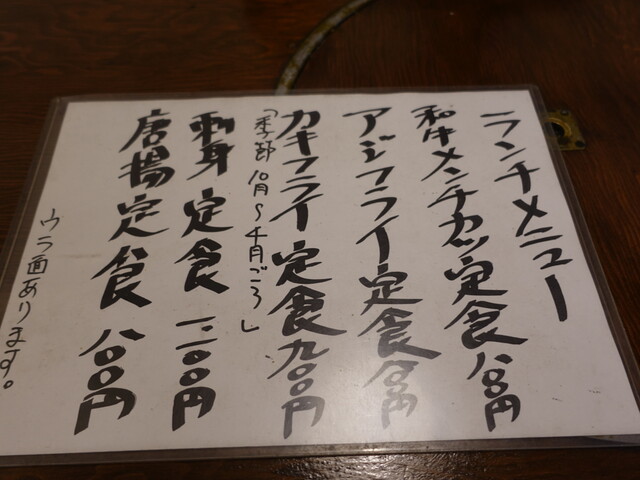 ランチメニュー
和牛メンチカツ定食 八〇〇円
アジフライ定食 八〇〇円
カキフライ定食 九〇〇円
「季節 10月〜4月ごろ」
刺身定食 一二〇〇円
唐揚定食 八〇〇円
ウラ面あります。